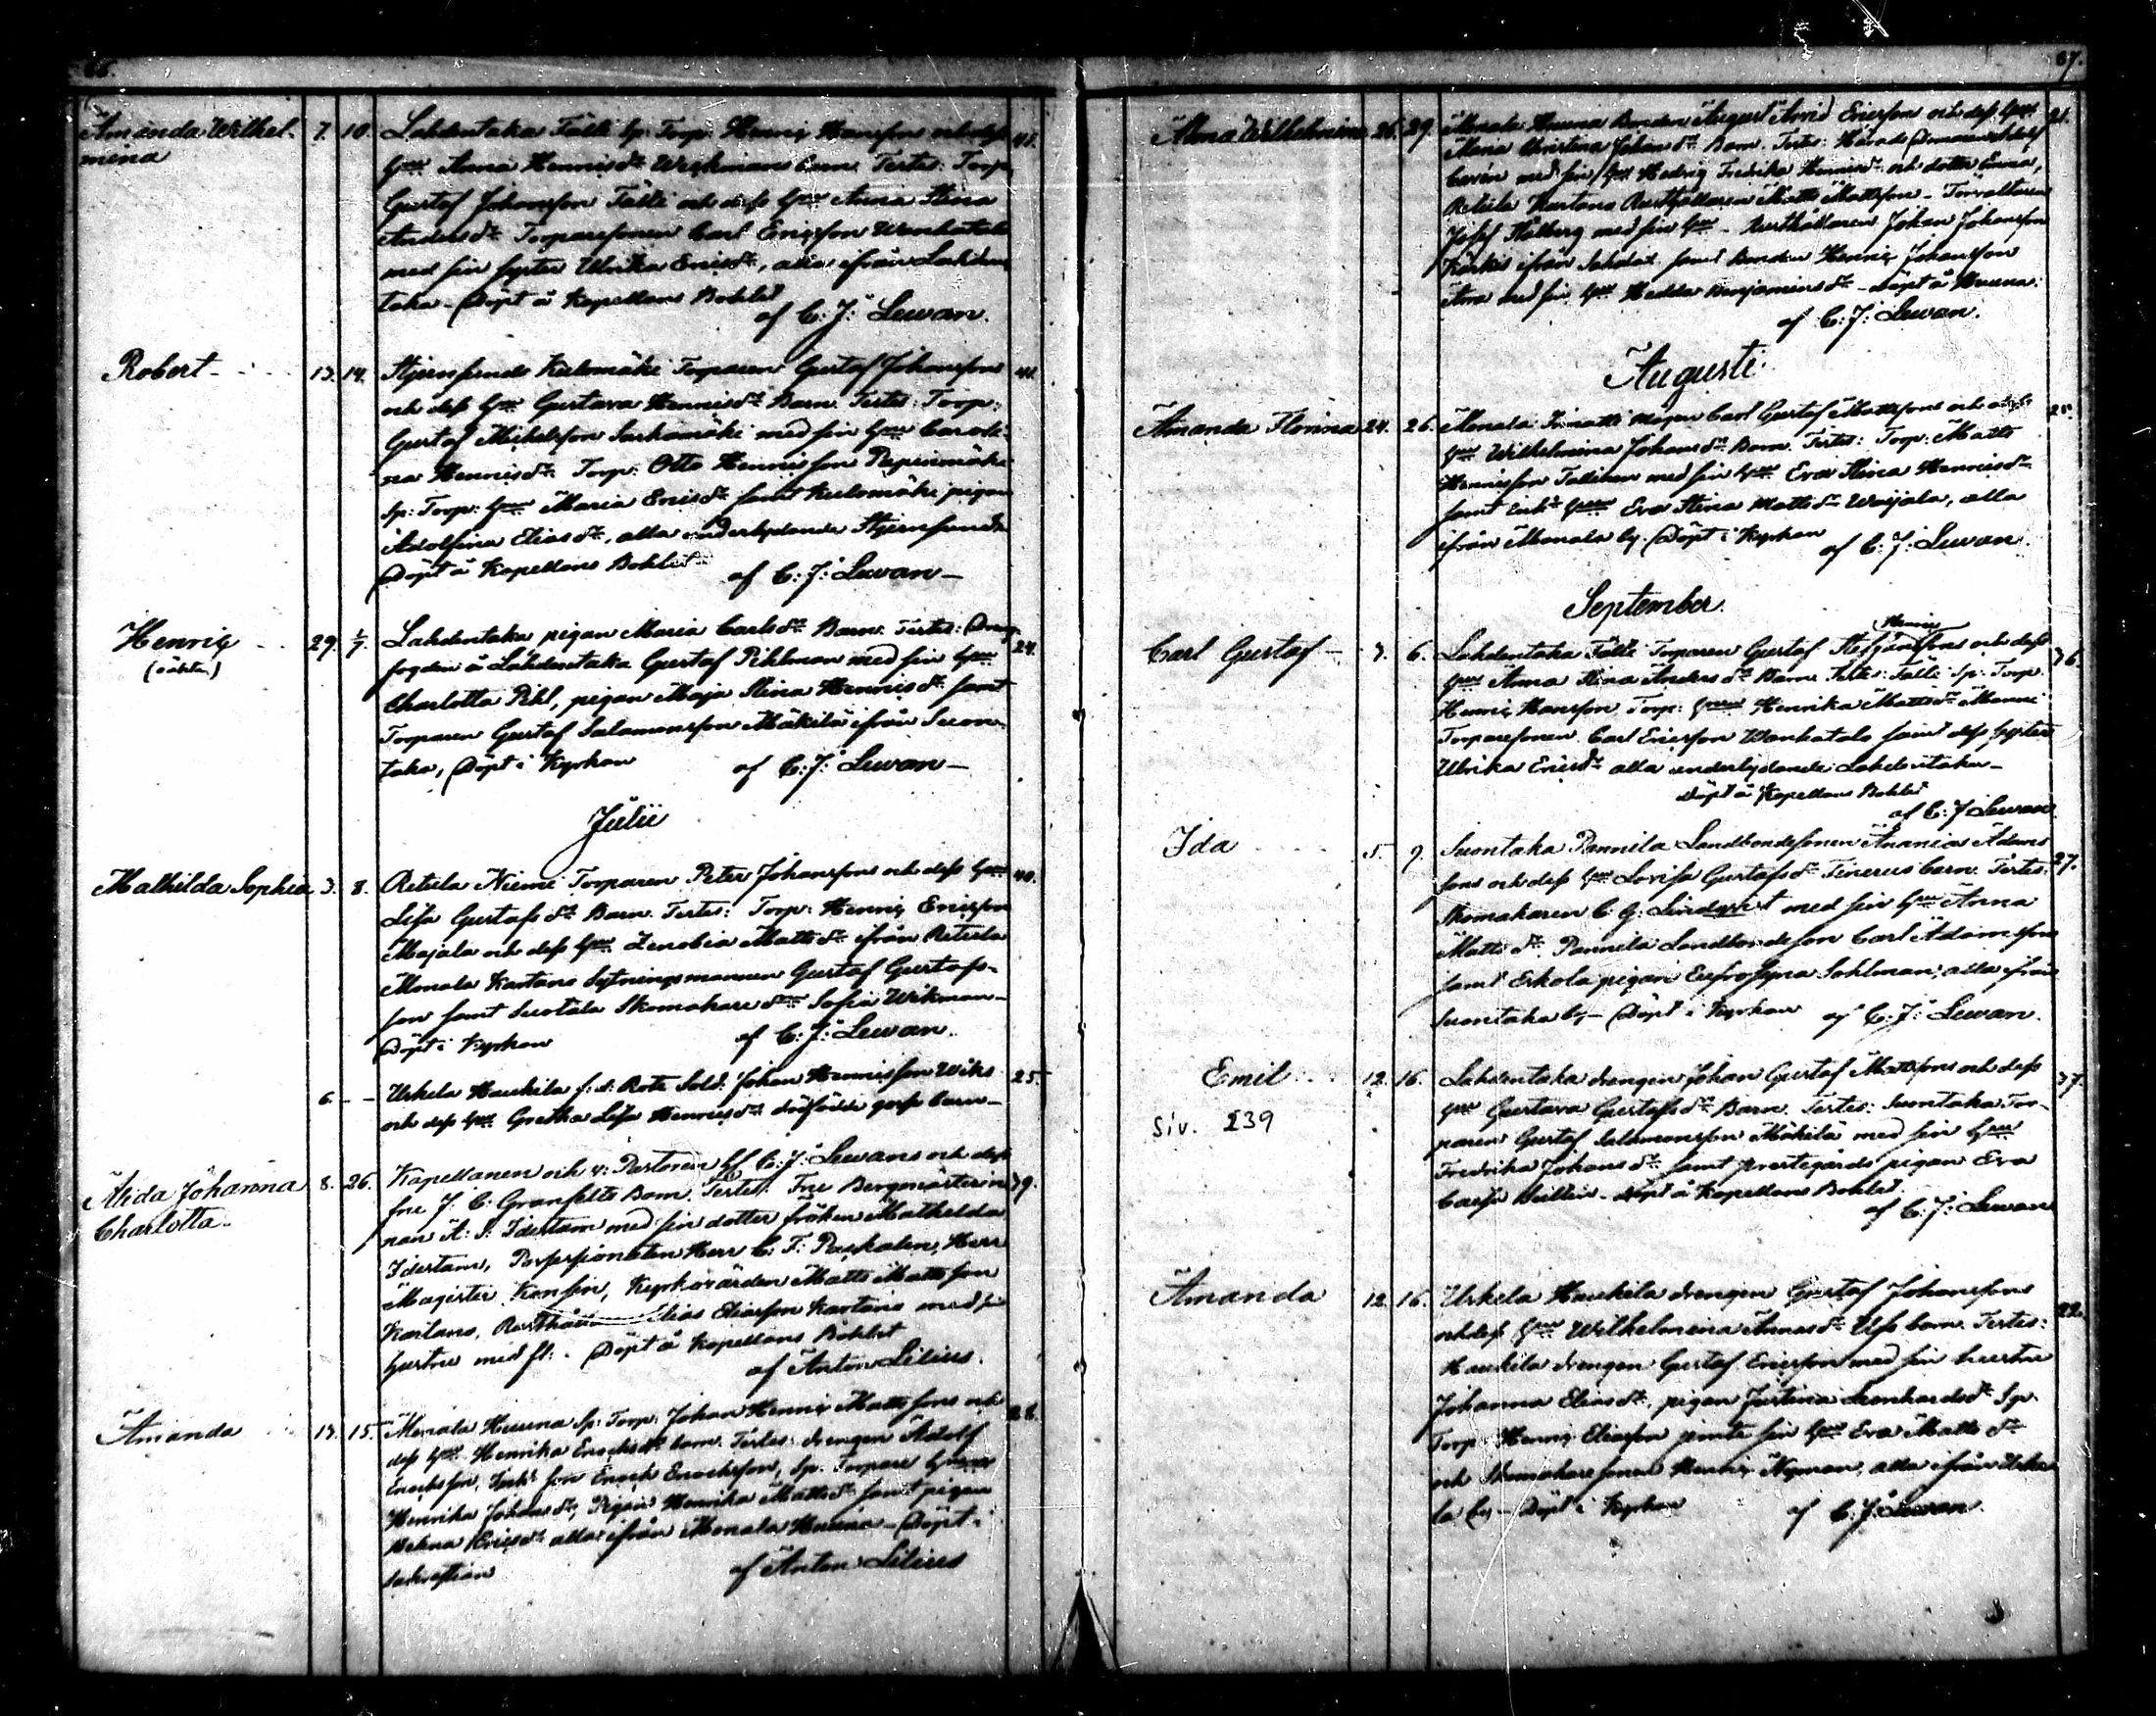 66.
Amanda Wilhel- 7. 10. Lahdentaka Fälli Sp: Torp: Henric Hansfons och dess 41.
mina Hru Anna Henricsdr Wickman barn. Testes: Torp:
Gustaf Johansson Fälli och dess Hru Anna Stina
Andersdr Torparesonen Carl Ericsson Wanhatalo
med sin syster Ulrika Ericsdr, alla ifrån Lahden
taka - Döpt å Kapellans Bohlet
af C: J: Lewan.
Robert - 13. 14. Stjernsunds Kulomäki Torparen Gustaf Johanssons 41.
och dess Hru Gustava Henricsdr Barn. Testes: Torp:
Gustaf Michelsson Sarkamäki med sin Hru Caroli-
na Henricsdr Torp: Otto Henricsson
Sp: Torp: Hru Maria Ericsdr samt Kulomäki pigan
Adolfina Eliasdr, alla underlydande Stjernsund
Döpt å Kapellans Bohlet af C: J: Lewan -
Henric 29. 1/7. Lahdentaka pigan Maria Carlsdr Barn. Testes: Dreng- 24.
(oäkta) fogden å Lahdentaka Gustaf Pihlman med sin Hru
Charlotta Pihl, pigan Maja Stina Henricsdr samt
Torparen Gustaf Salamonsson Mäkilä ifrån Suon-
taka, Döpt i Kyrkan af C: J: Lewan -
Julii
Mathilda Sophia 3. 8. Retula Niemi Torparen Peter Johanssons och dess Hru 40.
Lisa Gustafsdr Barn. Testes: Torp: Henric Ericsson
Majala och dess Hru Zenobia Mattsdr ifrån Retula
Monala Kartano Sytningsmannen Gustaf Gustafs-
son samt Suotala Skomakare dr Sofia Wikman -
Döpt i Kyrkan af C: J: Lewan.
6. - - Urkela Haukila f: d: Rote Sold: Johan Henricsson Wiks 25.
och dess Hru Gretha Lisa Henricsdr dödfödde goss barn -
Alida Johanna 8. 26. Kapellanen och v: Pastoren C: J: Lewans och dess 29.
Charlotta. fru J: C: Granfelts Barn. Testes: Fru Bergmästerin
nan A: S: Idestam med sin dotter fröken Mathilda
Idestam, Herr C: F: Paskalen, Herr
Magister Konsin, Kyrkovärden Matts Mattsson
Kartano, Elias Eliasson Kartano med sin
hustru med fl: . Döpt å Kapellans Bohlet
af Anton Lilius.
Amanda 13. 15. Monala Huuna Sp: Torp: Johan Henric Mattssons och 28.
dess Hru Henrika Enochsdr barn. Testes: drengen Adolf
Enochsson, Enoch Enochsson, Sp: Torpare Hru
Henrika Johansdr, Pigan Henrika Mattsdr samt pigan
Helena Ericsdr alla ifrån Monala Huuna - Döpt i
Sakristian af Anton Lilius
67.
Alma Wilhelmina 26. 29. Monala Huuna Bonden August Arvid Ericsson och dess Hru 21.
Maria Christina Johansdr Barn. Testes: Härads
med sin Hru Hedvig Fredrika Henricsdr och dotter Emma,
Retula Kartano Rusthållaren Matts Mattsson - Förvaltaren
Josef Stålberg med sin Hru - Rusthållaren Johan Johansson
ifrån Sahdat samt Bonden Henric Johansson
med sin Hru Hedda Benjaminsdr - Döpt å Huuna.
af C: J: Lewan.
Augusti
Amanda Florina 24. 26. Monala mågen Carl Gustaf Mattssons och dess 25.
Hru Wilhelmina Johansdr Barn. Testes: Torp: Matts
Henricsson med sin Hru Eva Stina Henricsdr
samt Hru Eva Stina Mattsdr Waijala, alla
ifrån Monala by. Döpt i Kyrkan af C: J: Lewan.
September.
Henric
Carl Gustaf - 3. 6. Lahdentaka Fälli Torparen Gustaf och dess 36.
Hru Anna Stina Andersdr Barn. Testes: Fälli Sp: Torp:
Henric Hansson, Torp: Hru Henrika Mattsdr
Torparesonen Carl Ericsson Wanhatalo samt dess syster
Ulrika Ericsdr alla underlydande Lahdentaka -
Döpt å Kapellans Bohlet
af C: J: Lewan
Ida 5. 9. Suontaka Pannila Landbondesonen Ananias Adams 27.
sons och dess Hru Lovisa Gustafsdr barn. Testes:
Skomakaren C: G: Lindqvist med sin Hru Anna
Mattsdr Pannila Landbondeson Carl Adamsson
samt Erkola pigan Eufrosyna Sohlman, alla ifrån
Suontaka by - Döpt i Kyrkan af C: J: Lewan.
Emil 12. 16. Lahdentaka drengen Johan Gustaf Mattssons och dess 37.
Siv. 239 Hru Gustava Gustafsdr Barn. Testes: Suontaka Tor-
paren Gustaf Salomonsson Mäkilä med sin Hru
Fredrika Johansdr samt prestegårds pigan Eva
Döpt å Kapellans Bohlet.
af C: J: Lewan
Amanda 12. 16. Urkela Haukila drengen Gustaf Johanssons 22.
och dess Hru Wilhelmina Annasdr barn. Testes:
Haukila drengen Gustaf Ericsson med sin hustru
Johanna Eliasdr, pigan Justina Leonhardsdr Sp:
Torp: Henric Eliasson jemte sin Hru Eva Mattsdr
och Skomakaresonen Henric Nyman, alla ifrån Urke
la by - Döpt i Kyrkan af C: J: Lewan.